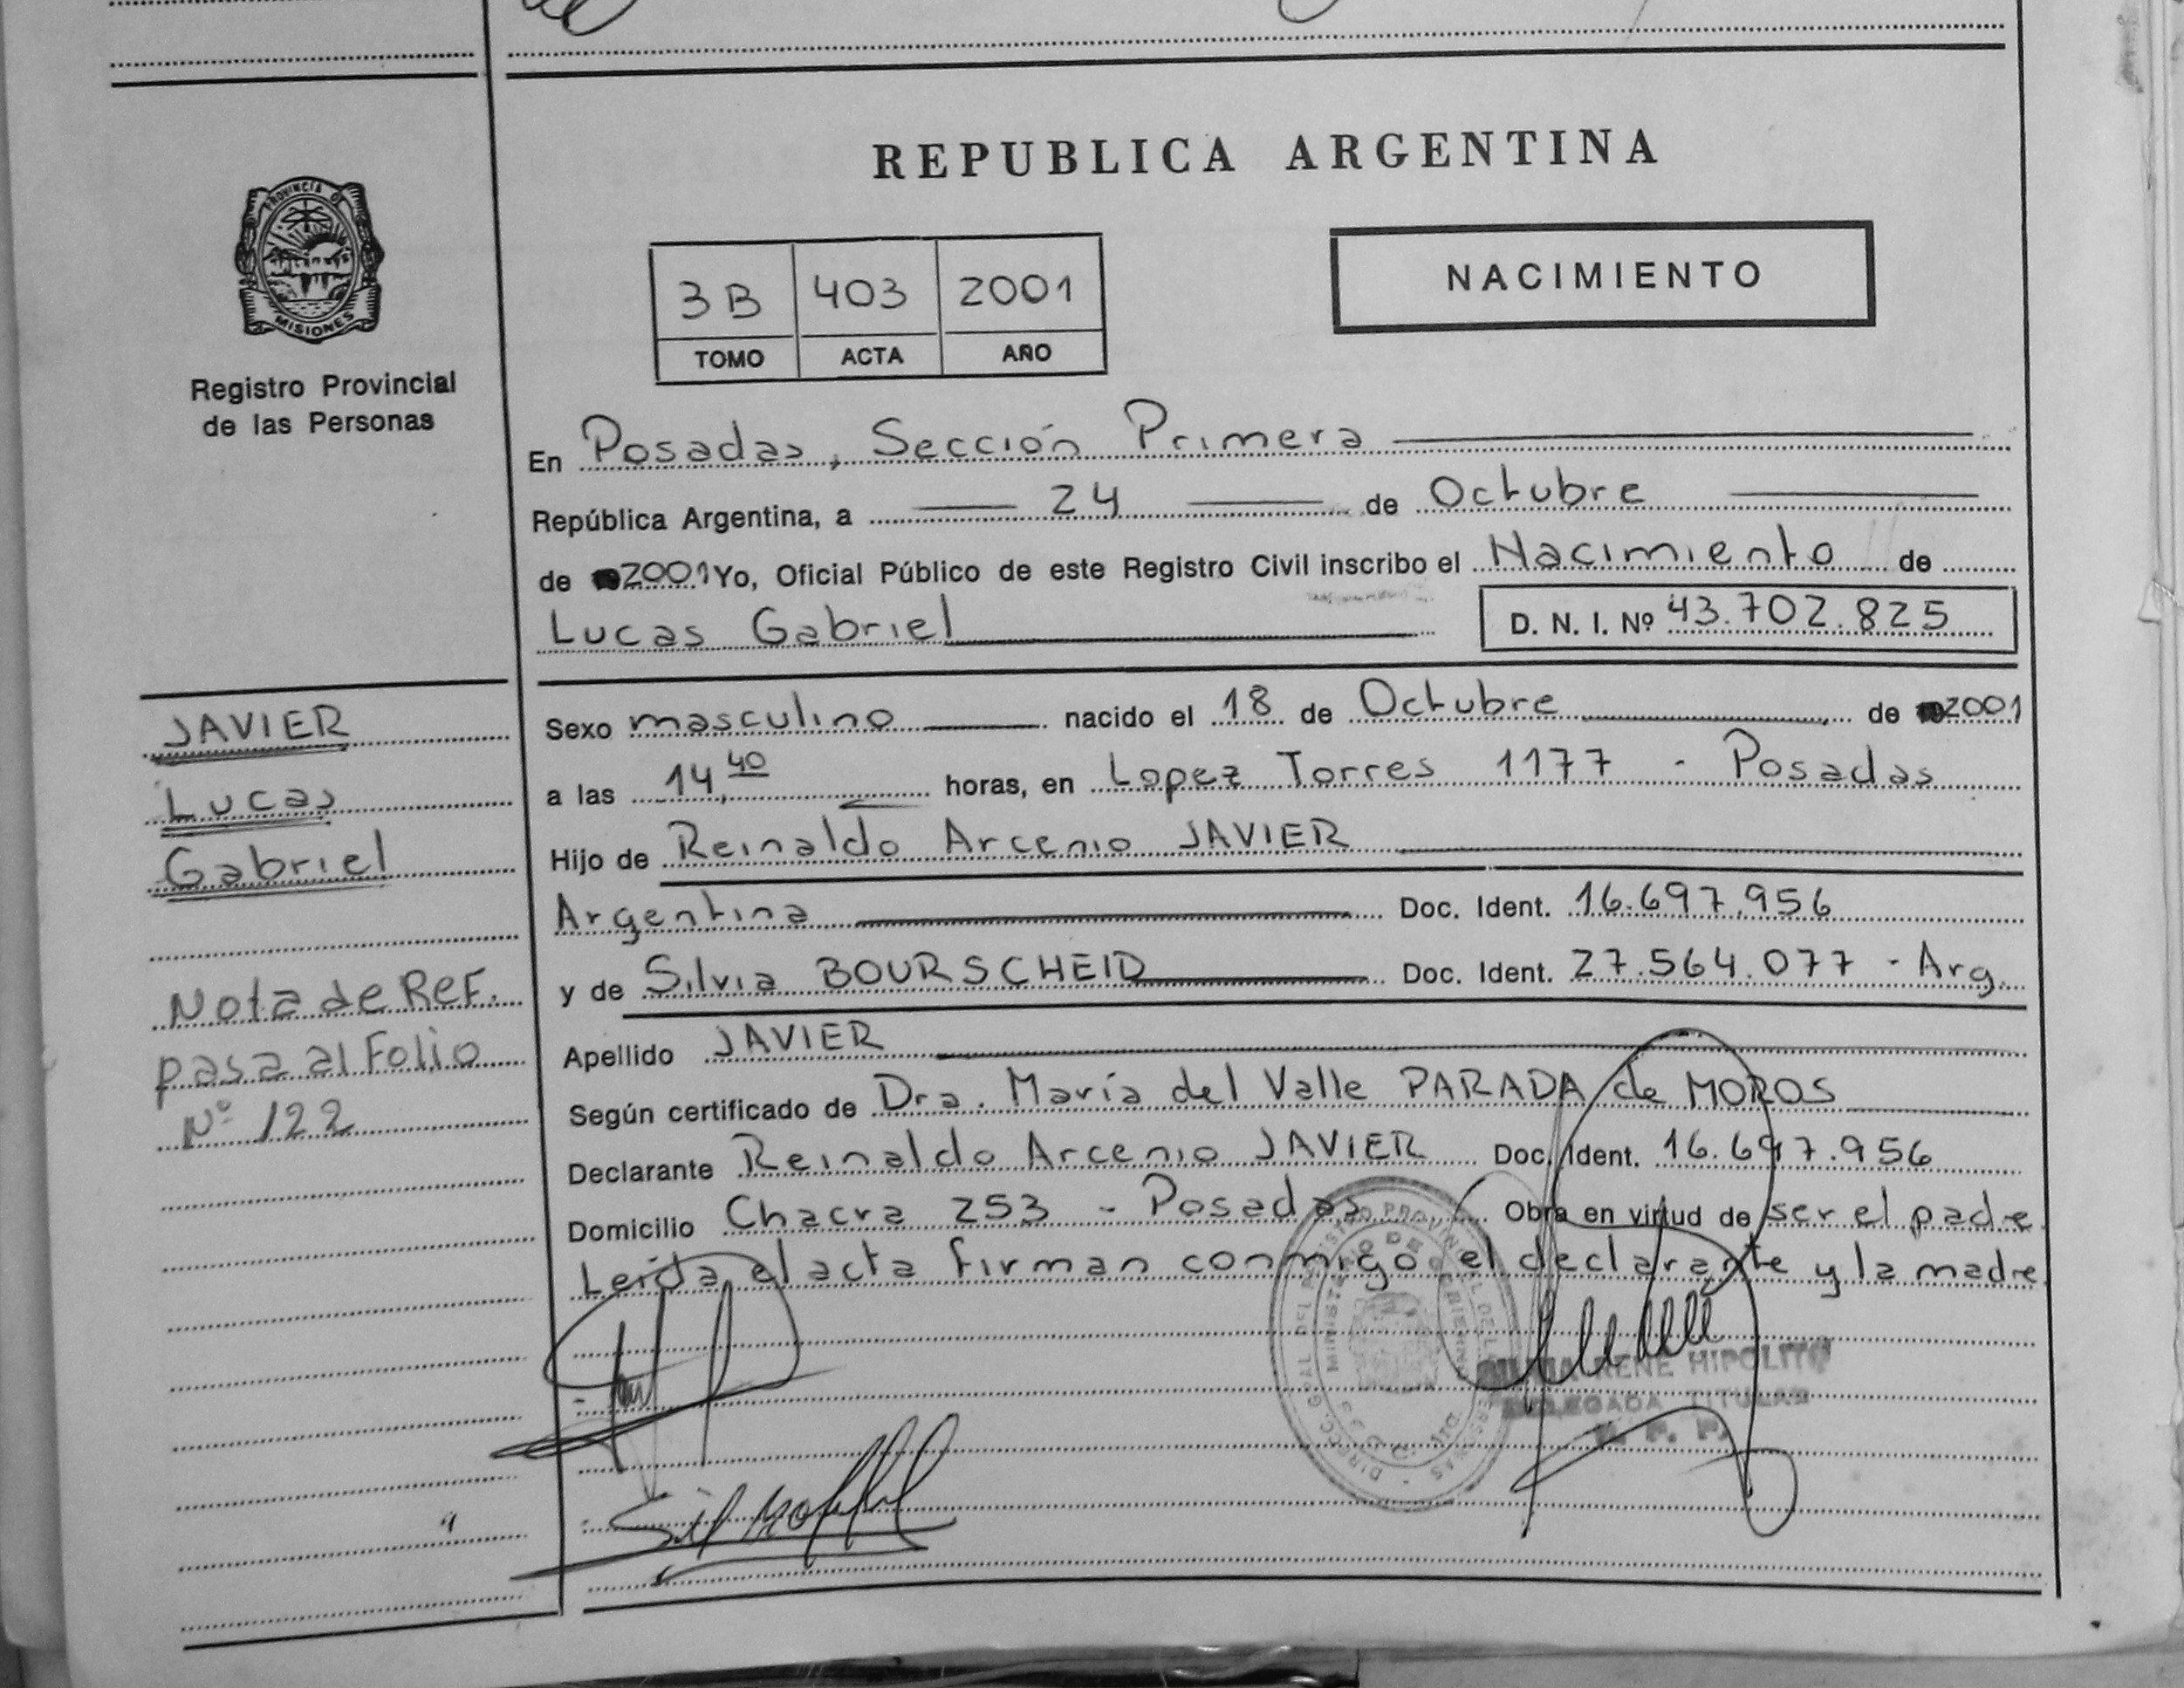 REPUBLICA ARGENTINA
PROVINCIA DE
MISIONES
Registro Provincial
de las Personas
3B 403 2001
TOMO ACTA AÑO
NACIMIENTO
En Posadas, Sección Primera
República Argentina, a 24 de Octubre
de 2001 Yo, Oficial Público de este Registro Civil inscribo el Nacimiento de
Lucas Gabriel D. N. I. Nº 43.702.825
JAVIER
Lucas
Gabriel
Nota de Ref.
pasa al Folio
Nº 122
Sexo masculino nacido el 18 de Octubre de 2001
a las 14,40 horas, en Lopez Torres 1177 - Posadas
Hijo de Reinaldo Arcenio JAVIER
Argentina Doc. Ident. 16.697.956
y de Silvia BOURSCHEID Doc. Ident. 27.564.077 - Arg.
Apellido JAVIER
Según certificado de Dra. María del Valle PARADA de MOROS
Declarante Reinaldo Arcenio JAVIER Doc. Ident. 16.697.956
Domicilio Chacra 253 - Posadas Obra en virtud de ser el padre.
Leída el acta firman conmigo el declarante y la madre.
IRENE HIPOLITO
DELEGADA TITULAR